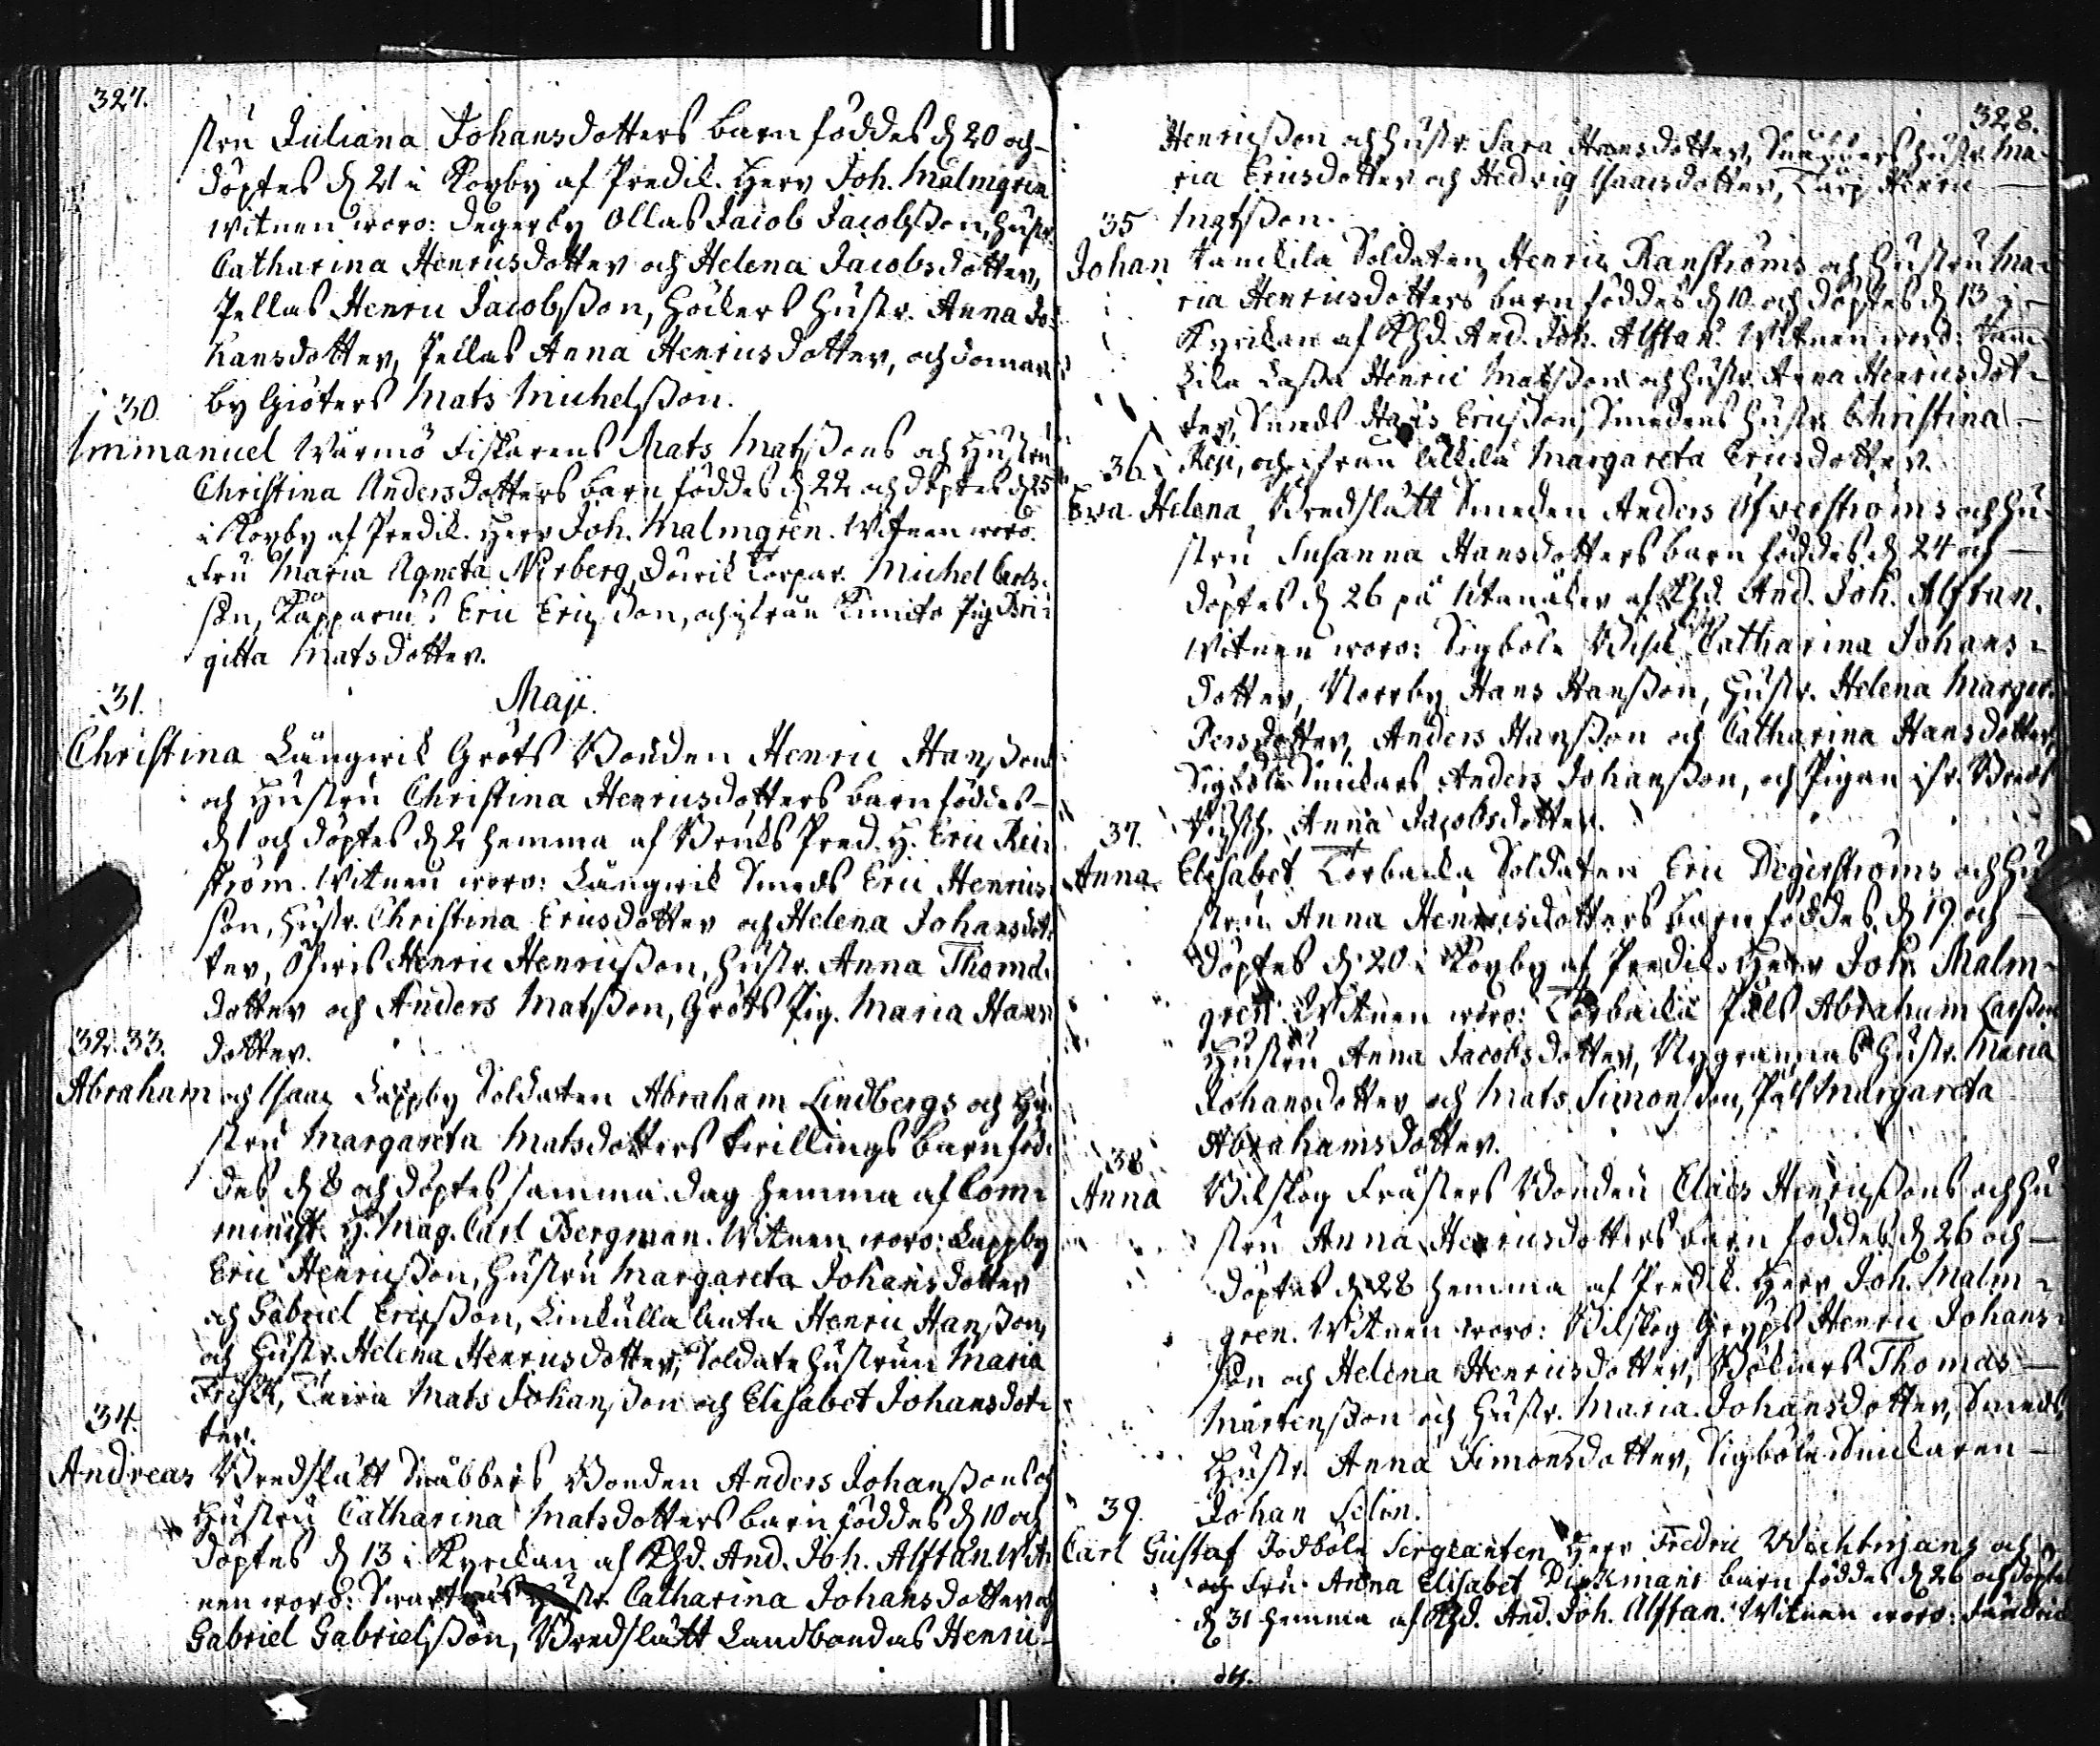 327.
stru Juliana Johansdotters barn föddes d 20 och
döptes d 21 i Kovby af Predik. Herr Joh. Malmgren
Witnen woro: Degerby Ollas Jacob Jacobsson, hustr.
Catharina Henricsdotter och Helena Jacobsdotter,
Pellas Henric Jacobsson, Höckers hustr. Anna Jo-
hansdotter, Pellas Anna Henricsdotter, och
by Gröters Mats Michelsson.
30.
Immanuel Wärmö Fiskarens Mats Matssons och Hustru
Christina Andersdotters barn föddes d 22 och döptes d 25
i Kovby af Predik. Herr Joh. Malmgren. Witnen woro
Fru Maria Agneta Nirberg, Torpar. Michel
son, Eric Ericsson, och ifrån Kimito Pig. Bri-
gitta Matsdotter.
31. Maji.
Christina Långwik Gröts Bonden Henric Hanssons
och Hustru Christina Henricsdotters barn föddes
d 1 och döptes d 2 hemma af Bruks Pred. H. Eric Ren-
ström. Witnen woro: Långwik Smeds Eric Henrics-
son, Hustr. Christina Ericsdotter och Helena Johansdot-
ter, Öfwis Henric Henricsson, hustr. Anna Thomæ-
dotter och Anders Matsson, Gröts Pig. Maria Hans-
32. 33. dotter.
Abraham och Isaac Lappby Soldaten Abraham Lindbergs och Hu-
stru Margareta Matsdotters twillings barn föd-
des d 8 och döptes samma dag hemma af Com-
minist. H. Mag. Carl Bergman. Witnen woro: Lappby
Eric Henricsson, Hustru Margareta Johansdotter
och Gabriel Ericsson, Linkulla Anta Henric Hansson,
och Hustr. Helena Henricsdotter, Soldate Hustrun Maria
Frisk, Mats Johansson och Elisabet Johansdot-
34. ter.
Andreas Bredslätt Snäbbers Bonden Anders Johanssons och
Hustru Catharina Matsdotters barn föddes d 10 och
döptes d 13 i Kyrckan af Khd. And. Joh. Alftan. Wit-
nen woro: hustr. Catharina Johansdotter och
Gabriel Gabrielsson, Bredslätt Landbondas Henric
328.
Henricsson och hustr. Sara Hansdotter, Snäbbers hustr. Ma-
ria Ericsdotter och Hedvig Isaacsdotter, Henric
35 Matsson.
Johan Tanskila Soldaten Henric Ranströms och Hustru Ma-
ria Henricsdotters barn föddes d 10 och döptes d 13 i
Kyrckan af Khd. And. Joh. Alftan. Witnen woro: Tans-
kila Lassa Henric Matsson och hustr. Anna Henricsdot-
ter, Smeds Hans Ericsson, Smedens hustr. Christina
36. Rej, och ifrån Margareta Ericsdotter.
Eva Helena, Bredslätt Smeden Anders Öfverströms och hu-
stru Susanna Hansdotters barn föddes d 24 och
döptes d 26 på Utanåker af Khd. And. Joh. Alftan.
Witnen woro: Sigböle Catharina Johans-
dotter, Norrby Hans Hansson, Hustr. Helena Marger.
Persdotter, Anders Hansson och Catharina Hansdotter,
Sigböle Snickars Anders Johansson, och Pigan ifr. Bred-
37. Anna Jacobsdotter.
Anna Elisabet Torbacka Soldaten Eric Degerströms och Hu-
stru Anna Henricsdotters barn föddes d 19 och
döptes d 20 i Kovby af Predik. Herr Joh. Malm-
gren. Witnen woro: Torbacka Påls Abraham Carlsson
Hustru Anna Jacobsdotter, Nygrannas hustr. Maria
Johansdotter och Mats Simonsson, Påls Margareta
Abrahamsdotter.
38
Anna Wilskog Frusters Bonden Claës Henricssons och hu-
stru Anna Henricsdotters barn föddes d 26 och
döptes d 28 hemma af Predik. Herr Joh. Malm-
gren. Witnen woro: Wilskog Gryps Henric Johans-
son och Helena Henricsdotter, Bölears Thomas
Mårtensson och Hustr. Maria Johansdotter, Smeds
Hustr. Anna Simonsdotter, Sigböle Snickaren
39. Johan Selin.
Carl Gustaf Jodböle Sergeanten Herr Fredric och
och Fru Anna Elisabet Dickmans barn föddes d 26 och döptes
d 31 hemma af Khd. And. Joh. Alftan. Witnen woro: